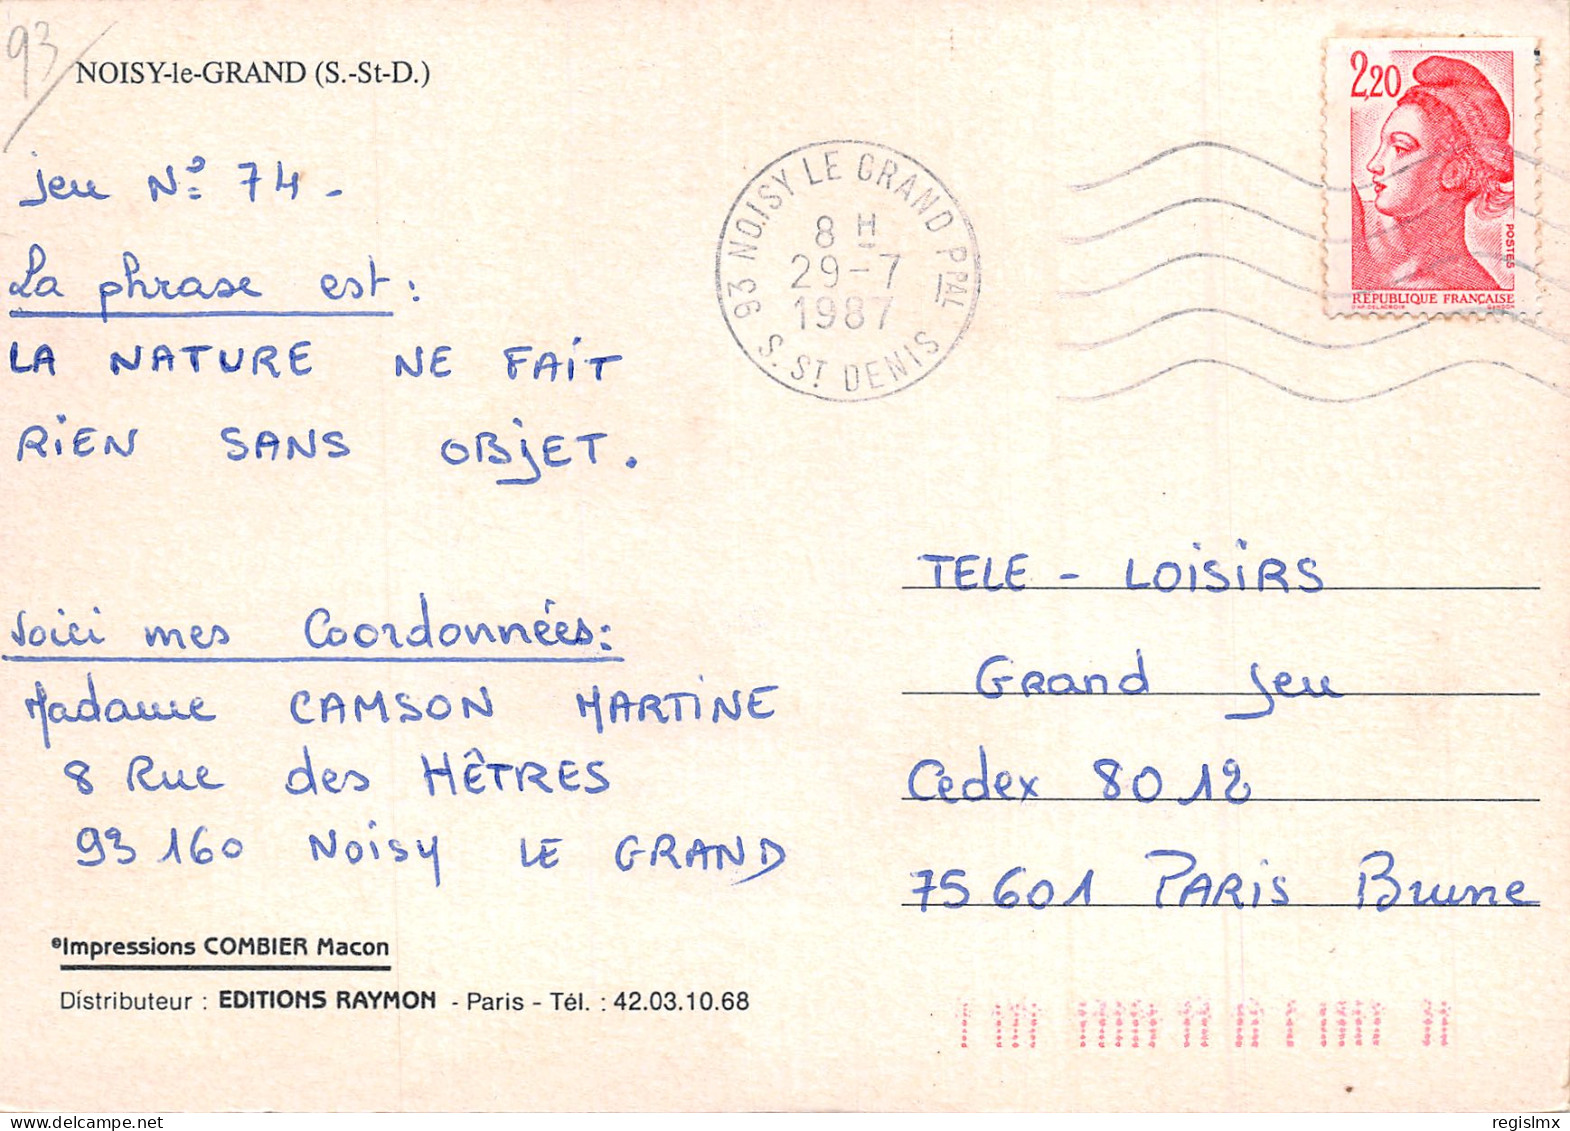 93
NOISY-le-GRAND (S.-St-D.)
jeu Nº 74 -
La phrase est :
LA NATURE NE FAIT
RIEN SANS OBJET.
Voici mes Coordonnées :
Madame CAMSON MARTINE
8 Rue des HÊTRES
93 160 NOISY LE GRAND
©Impressions COMBIER Macon
Distributeur : EDITIONS RAYMON - Paris - Tél. : 42.03.10.68
93 NOISY LE GRAND PPAL
8 H
29-7
1987
S. ST DENIS
2,20
POSTES
RÉPUBLIQUE FRANÇAISE
D'AP. DELACROIX GANDON
TELE - LOISIRS
Grand Jeu
Cedex 8012
75 601 PARIS Brune
regislmx